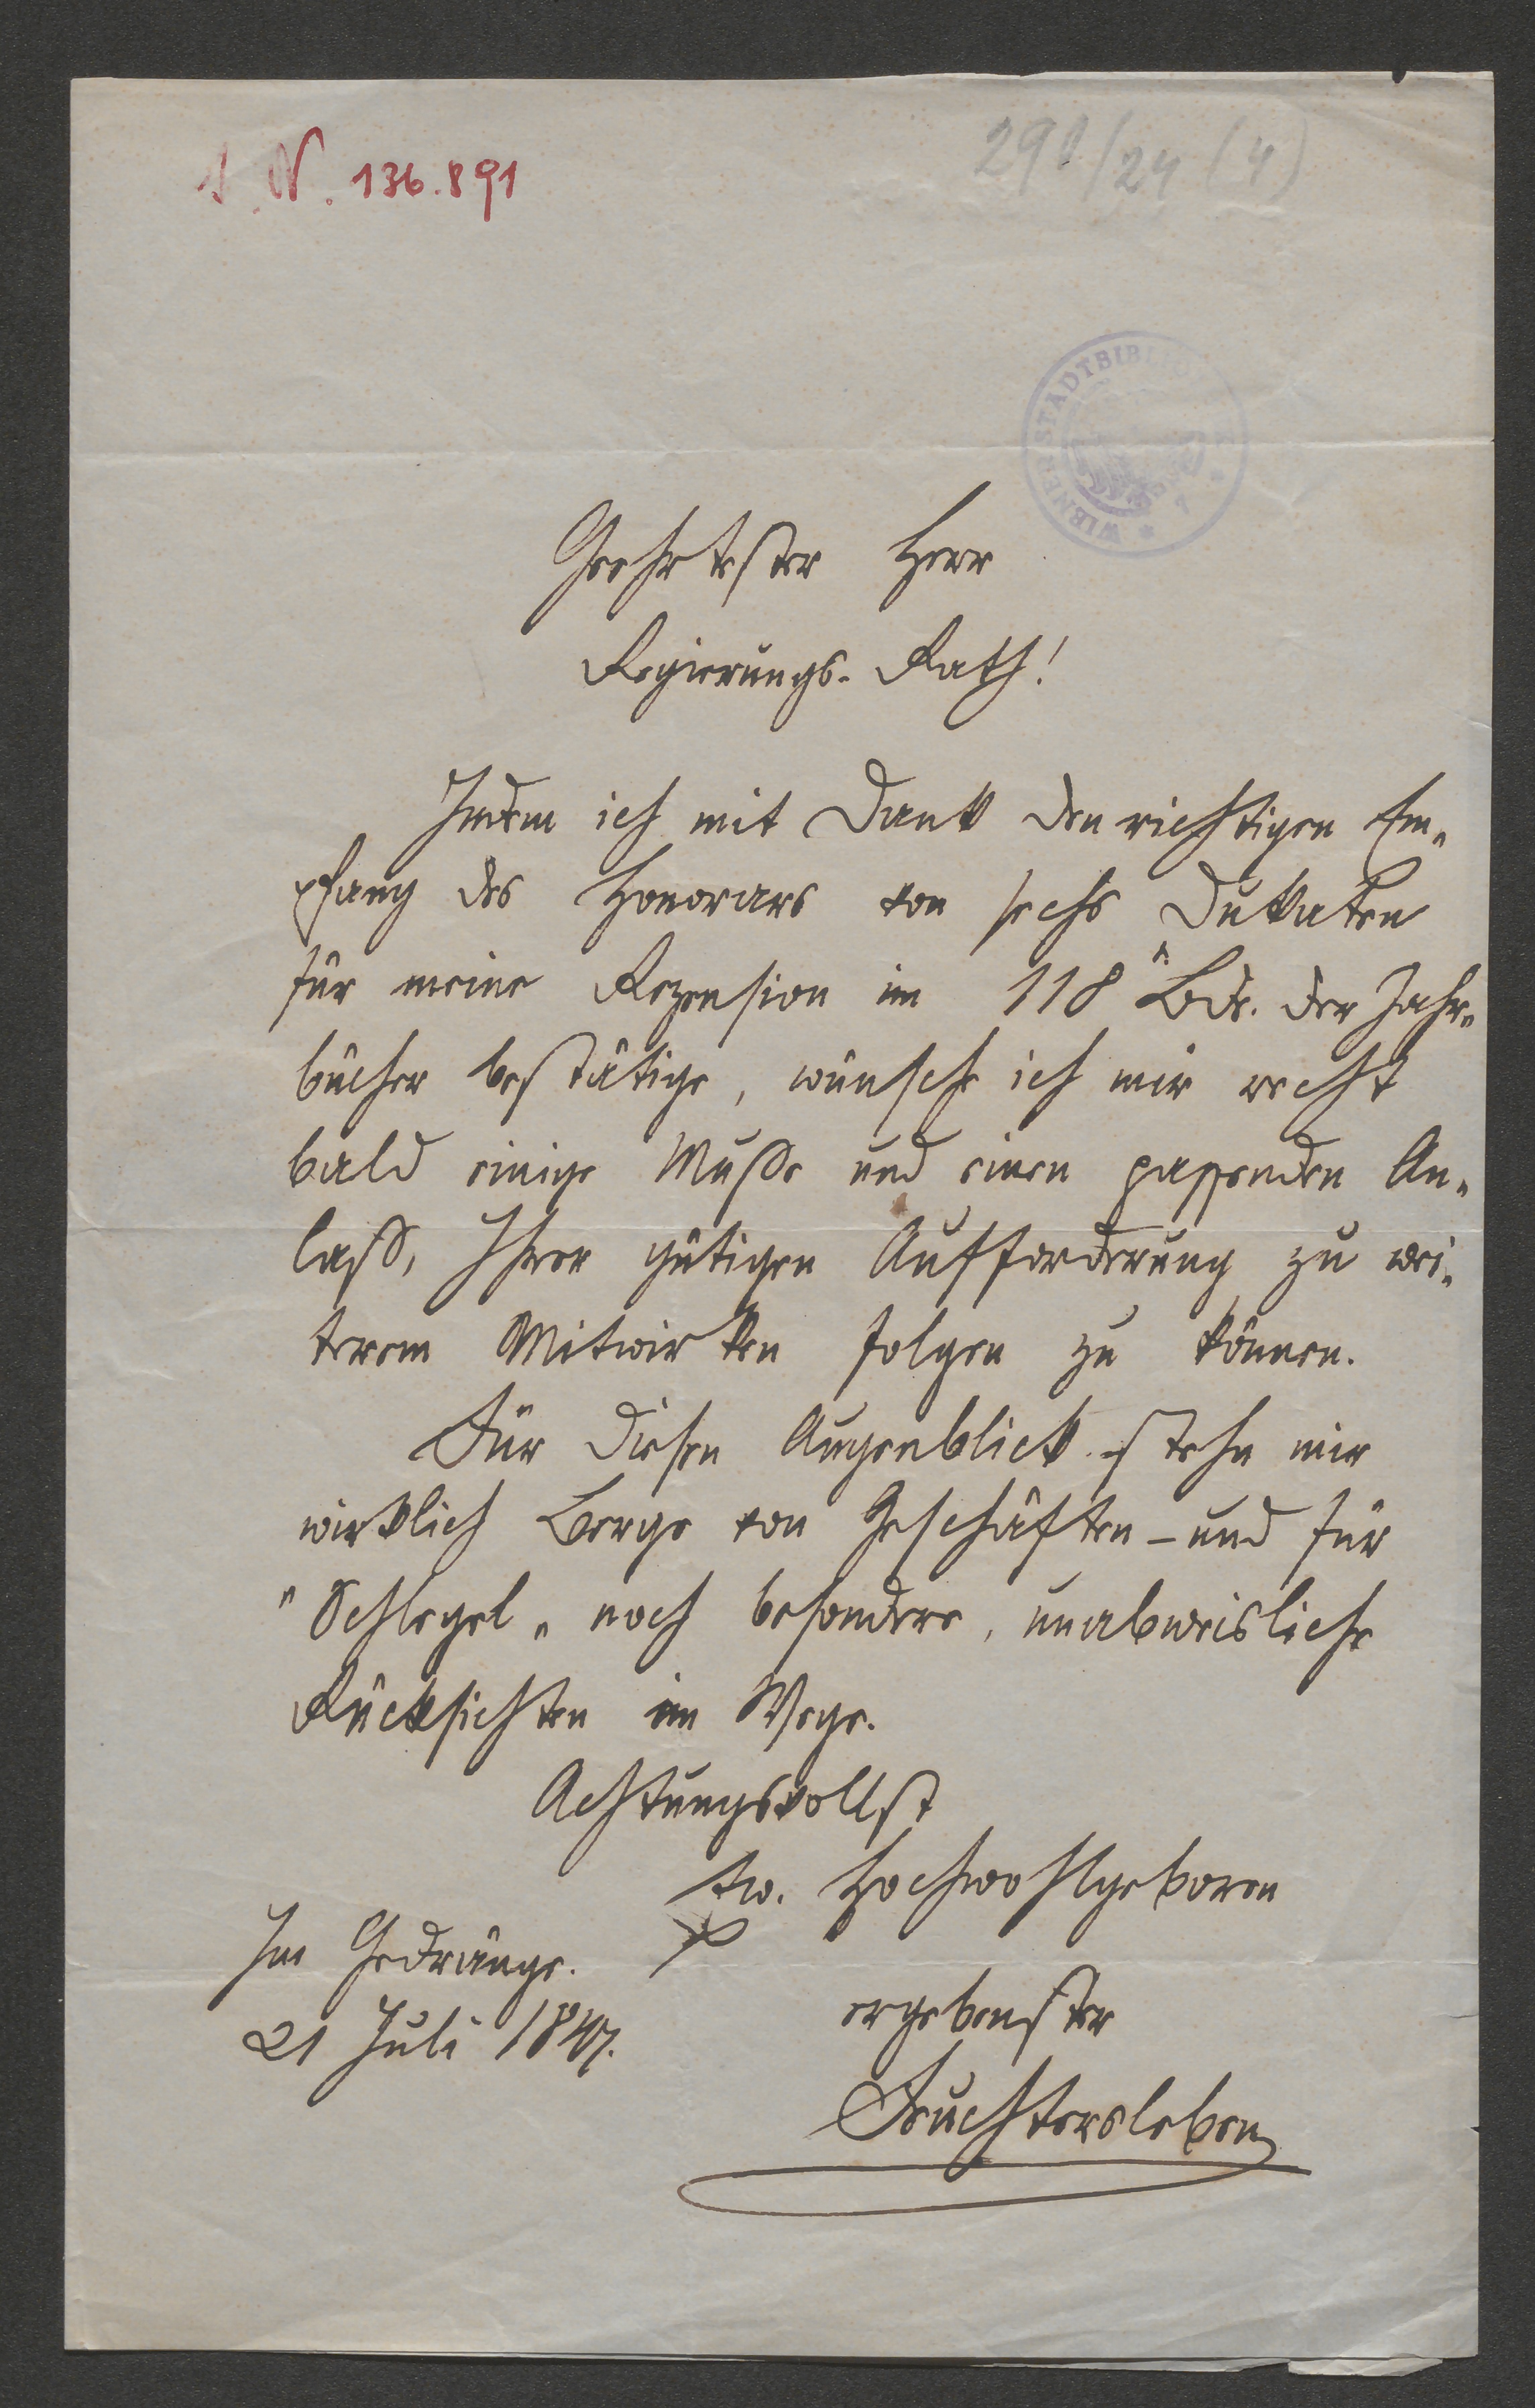 I. N. 136.891
290/24 (4)
WIENER STADTBIBLIOTHEK * 7 *
Geehrtester Herr
Regierungs-Rath!
Indem ich mit Dank den richtigen Em-
pfang des Honorars von sechs Dukaten
für meine Rezension im 118" Bde. der Jahr-
bücher bestätige, wünsche ich mir recht
bald einige Muße und einen passenden An-
laß, Ihrer gütigen Aufforderung zu wei-
terem Mitwirken folgen zu können.
Für diesen Augenblick stehn mir
wirklich Berge von Geschäften – und für
"Schlegel" noch besondere, unabweisliche
Rücksichten im Wege.
Achtungsvollst
Ew. Hochwohlgeboren
Im Gedränge.
21 Juli 1847.
ergebenster
Feuchtersleben